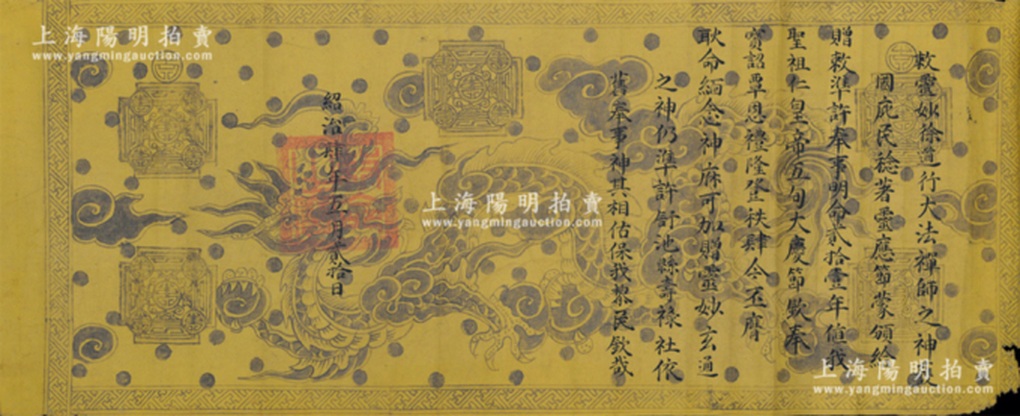 敕靈妙徐道行大法禪師之神
國庇民稔著靈應節蒙頒給
贈敕準許奉事明命貳拾壹年值我
聖祖仁皇帝五旬大慶節欽奉
寶詔覃恩禮隆登秩肆今丕膺
耿命緬念神庥可加贈靈妙玄通
之神仍準許舒池縣壽祿社依
舊奉事神其相佑保我黎民欽哉
紹治肆年五月貳拾日
上海陽明拍賣
www.yangmingauction.com
上海陽明拍賣
www.yangmingauction.com
上海陽明拍賣
www.yangmingauction.com
上海陽明拍賣
www.yangmingauction.com
上海陽明拍賣
www.yangmingauction.com